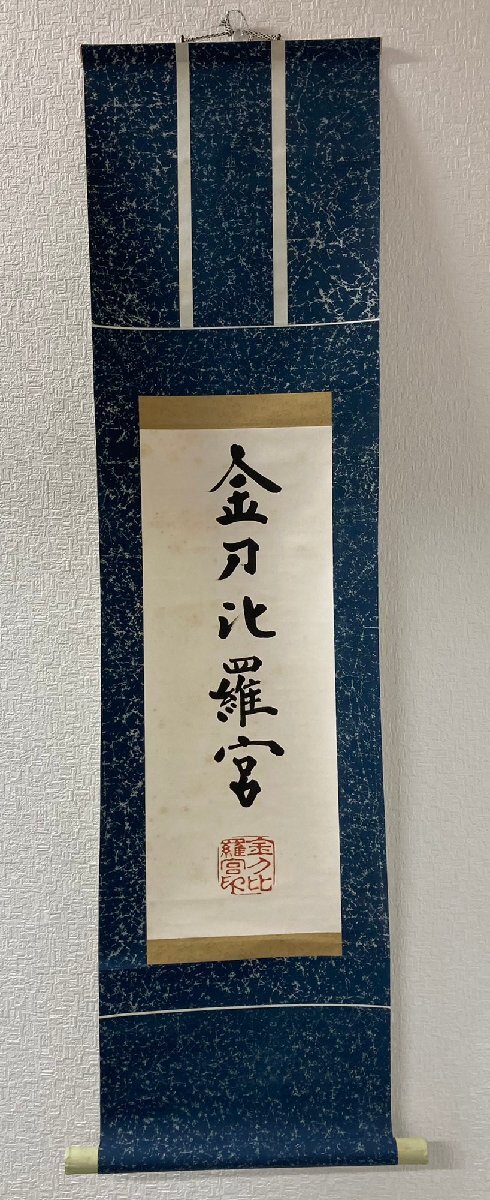 金刀比羅宮
金刀比
羅宮印